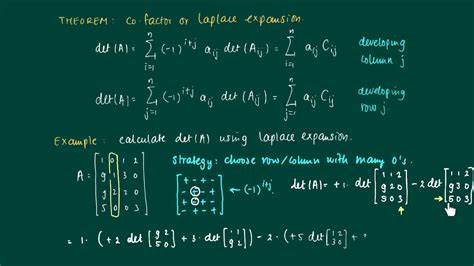 THEOREM: co-factor or Laplace expansion.
det(A) = Σ_{i=1}^{n} (-1)^{i+j} a_{ij} det(A_{ij}) = Σ_{i=1}^{n} a_{ij} C_{ij} developing column j
det(A) = Σ_{j=1}^{n} (-1)^{i+j} a_{ij} det(A_{ij}) = Σ_{j=1}^{n} a_{ij} C_{ij} developing row j
Example: calculate det(A) using Laplace expansion.
strategy: choose row/column with many 0's.
A = [1 0 1 2
9 1 3 0
9 2 2 0
5 0 0 3]
[+ - + -
- + - +
+ - + -
- + - +] ← (-1)^{i+j}
det(A) = +1 · det [1 1 2
9 2 0
5 0 3] - 2 det [1 1 2
9 3 0
5 0 3]
= 1 · (+2 det [9 2
5 0] + 3 · det [1 1
9 2]) - 2 · (+5 det [1 2
3 0] +